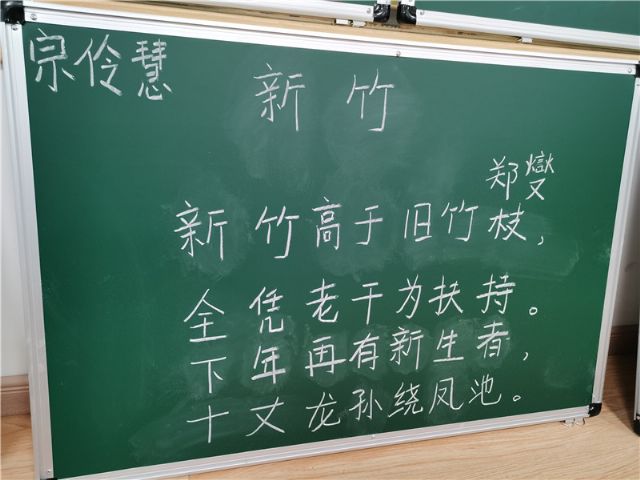 宗伶慧
新竹
郑燮
新竹高于旧竹枝,
全凭老干为扶持。
下年再有新生者,
十丈龙孙绕凤池。